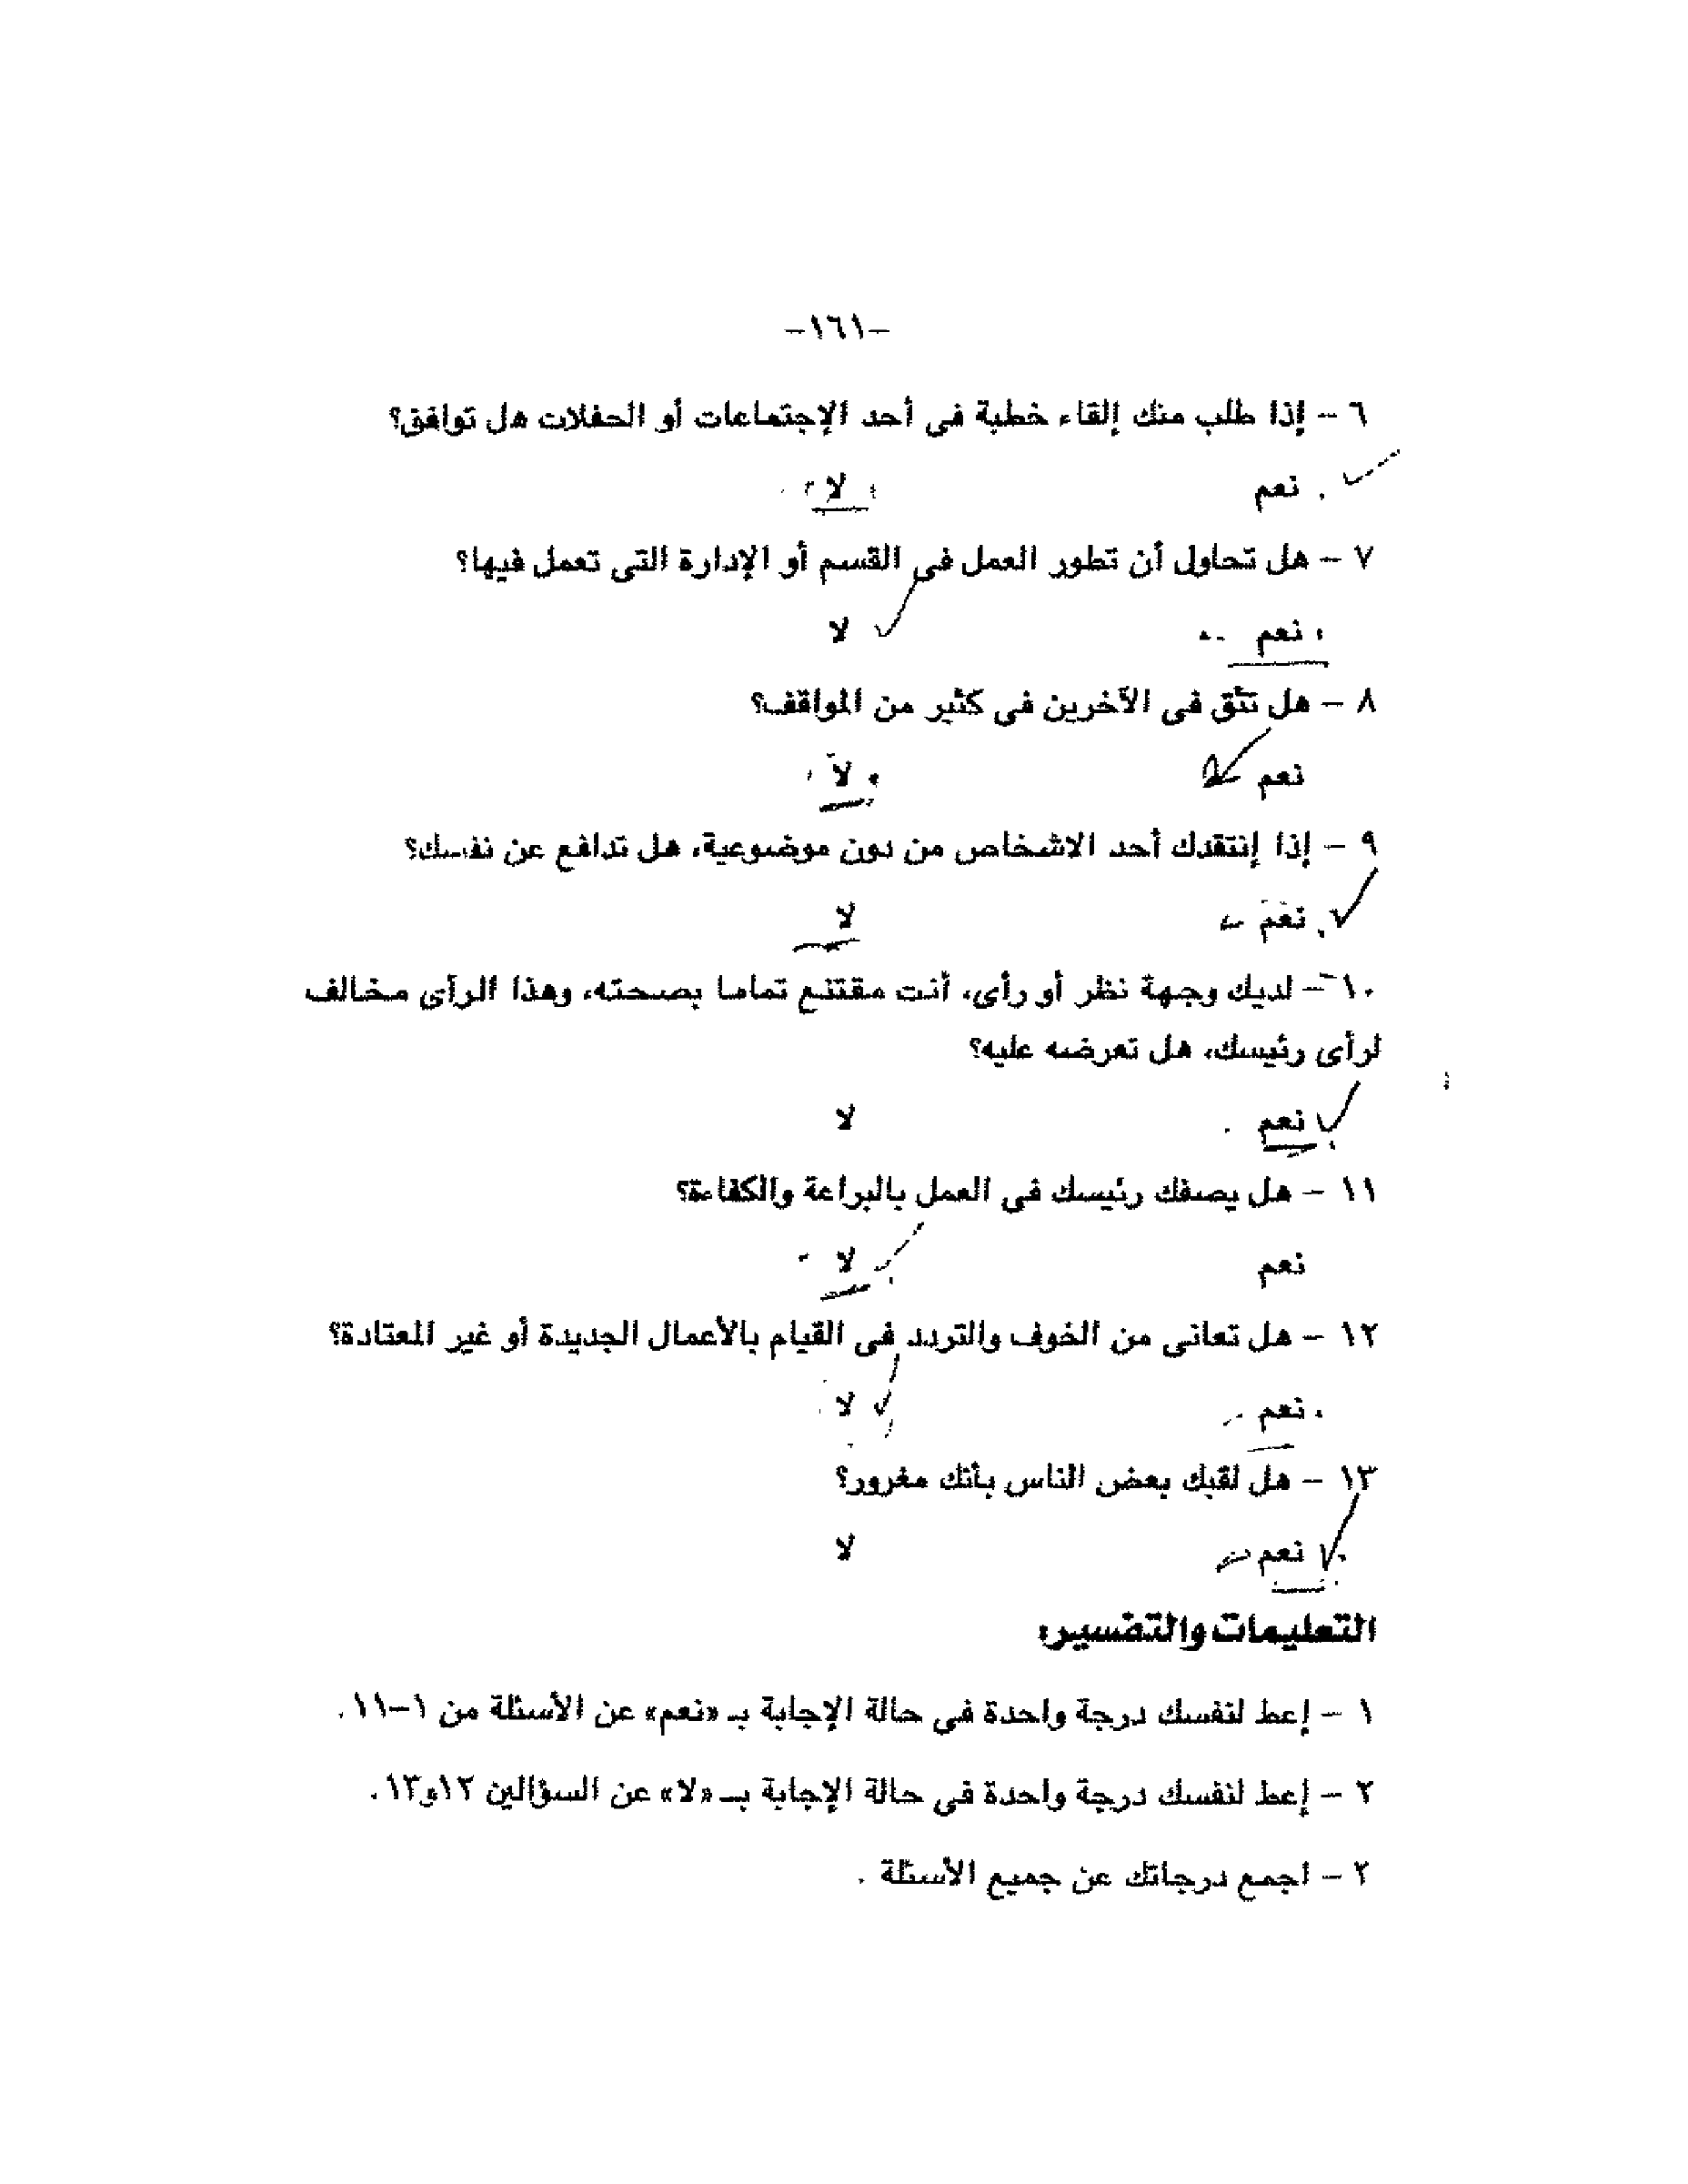 -١٦١-
٦ - إذا طلب منك إلقاء خطبة فى أحد الإجتماعات أو الحفلات هل توافق؟
نعم لا
٧ - هل تحاول أن تطور العمل فى القسم أو الإدارة التى تعمل فيها؟
نعم لا
٨ - هل تثق فى الآخرين فى كثير من المواقف؟
نعم لا
٩ - إذا إنتقدك أحد الاشخاص من دون موضوعية، هل تدافع عن نفسك؟
نعم لا
١٠ - لديك وجهة نظر أو رأى، أنت مقتنع تماما بصحته، وهذا الرأى مخالف
لرأى رئيسك، هل تعرضه عليه؟
نعم لا
١١ - هل يصفك رئيسك فى العمل بالبراعة والكفاءة؟
نعم لا
١٢ - هل تعانى من الخوف والتردد فى القيام بالأعمال الجديدة أو غير المعتادة؟
نعم لا
١٣ - هل لقبك بعض الناس بأنك مغرور؟
نعم لا
التعليمات والتفسير:
١ - إعط لنفسك درجة واحدة فى حالة الإجابة بـ «نعم» عن الأسئلة من ١-١١.
٢ - إعط لنفسك درجة واحدة فى حالة الإجابة بـ «لا» عن السؤالين ١٢و١٣.
٢ - اجمع درجاتك عن جميع الأسئلة .